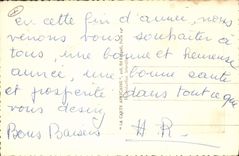 En cette fin d'année, nous
venons vous souhaiter à
tous, une bonne et heureuse
année, une bonne santé
et prosperité dans tout ce que
vous desirez
Bons Baisers H. R.
"LA CARTE AFRICAINE"